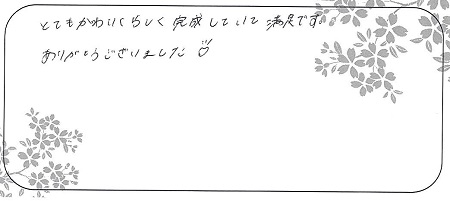 とてもかわいくらしく完成していて満足です。
ありがとうございました